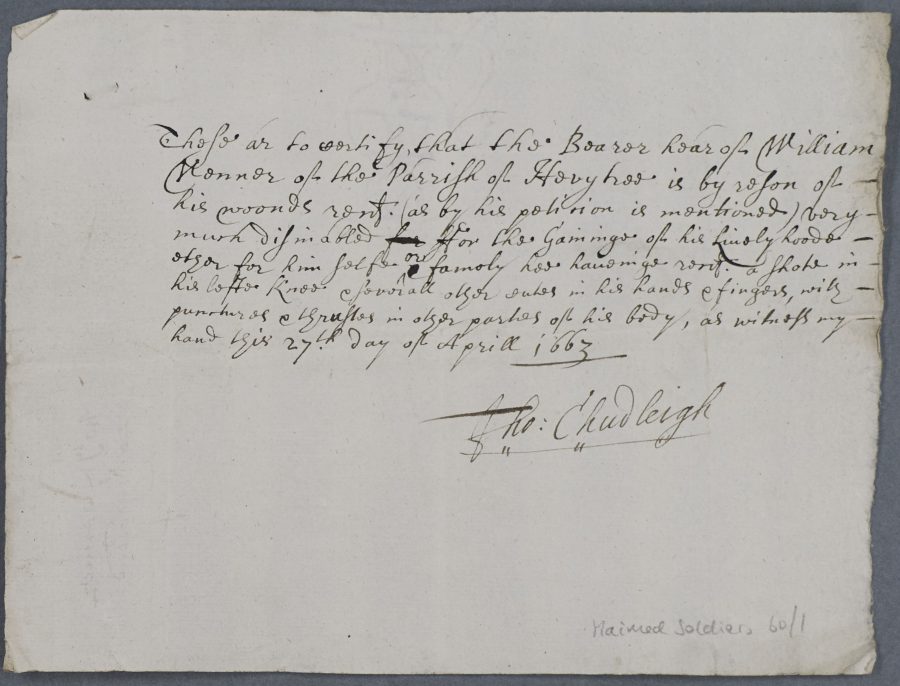 These ar to certify, that the Bearer hear of William
Venner of the Parrish of Hevytree is by reson of —
his woonds rent: (as by his peticion is mentioned) very —
much disinabled for ffor the Gaininge of his Livelyhoode —
ether for him selfe or famoly hee haveinge rent: a shote in —
his lefte Knee & severall other cutes in his hands & fingers, with —
punctures & thrustes in other partes of his body, as witness my —
hand this 27th day of Aprill 1663
Tho: Chudleigh
Maimed Soldiers 60/1